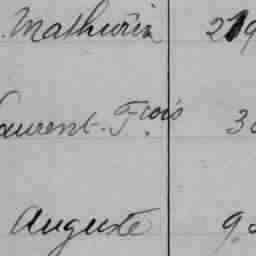 Mathurin 219
Laurent-F.cois 30
Auguste 9.